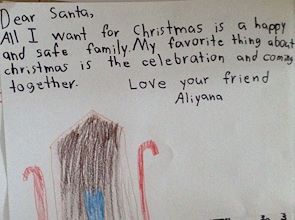 Dear Santa,
All I want for Christmas is a happy
and safe family. My favorite thing about
christmas is the celebration and coming
together.
Love your friend
Aliyana